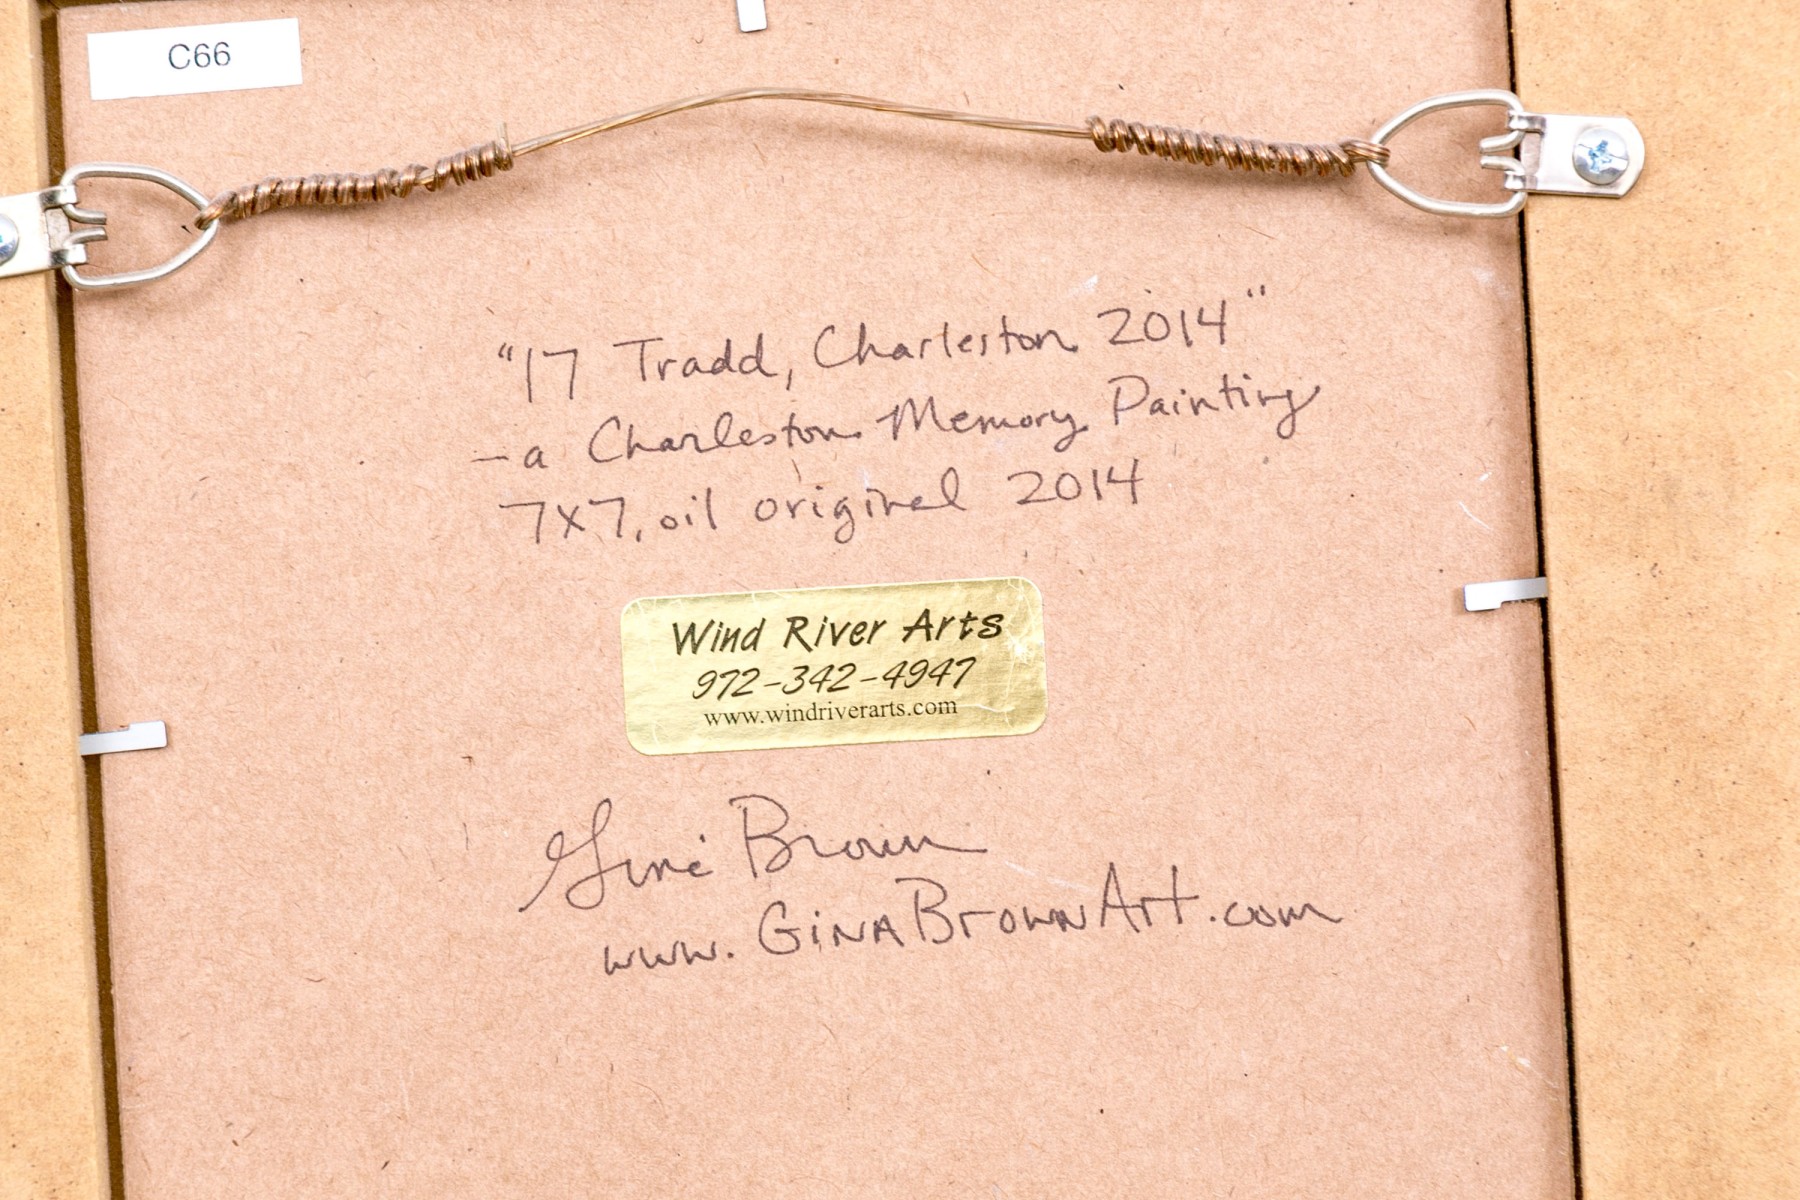 C66
"17 Tradd, Charleston 2014"
-a Charleston Memory Painting
7x7, oil original 2014
Wind River Arts
972-342-4947
www.windriverarts.com
Gina Brown
www.GinaBrownArt.com